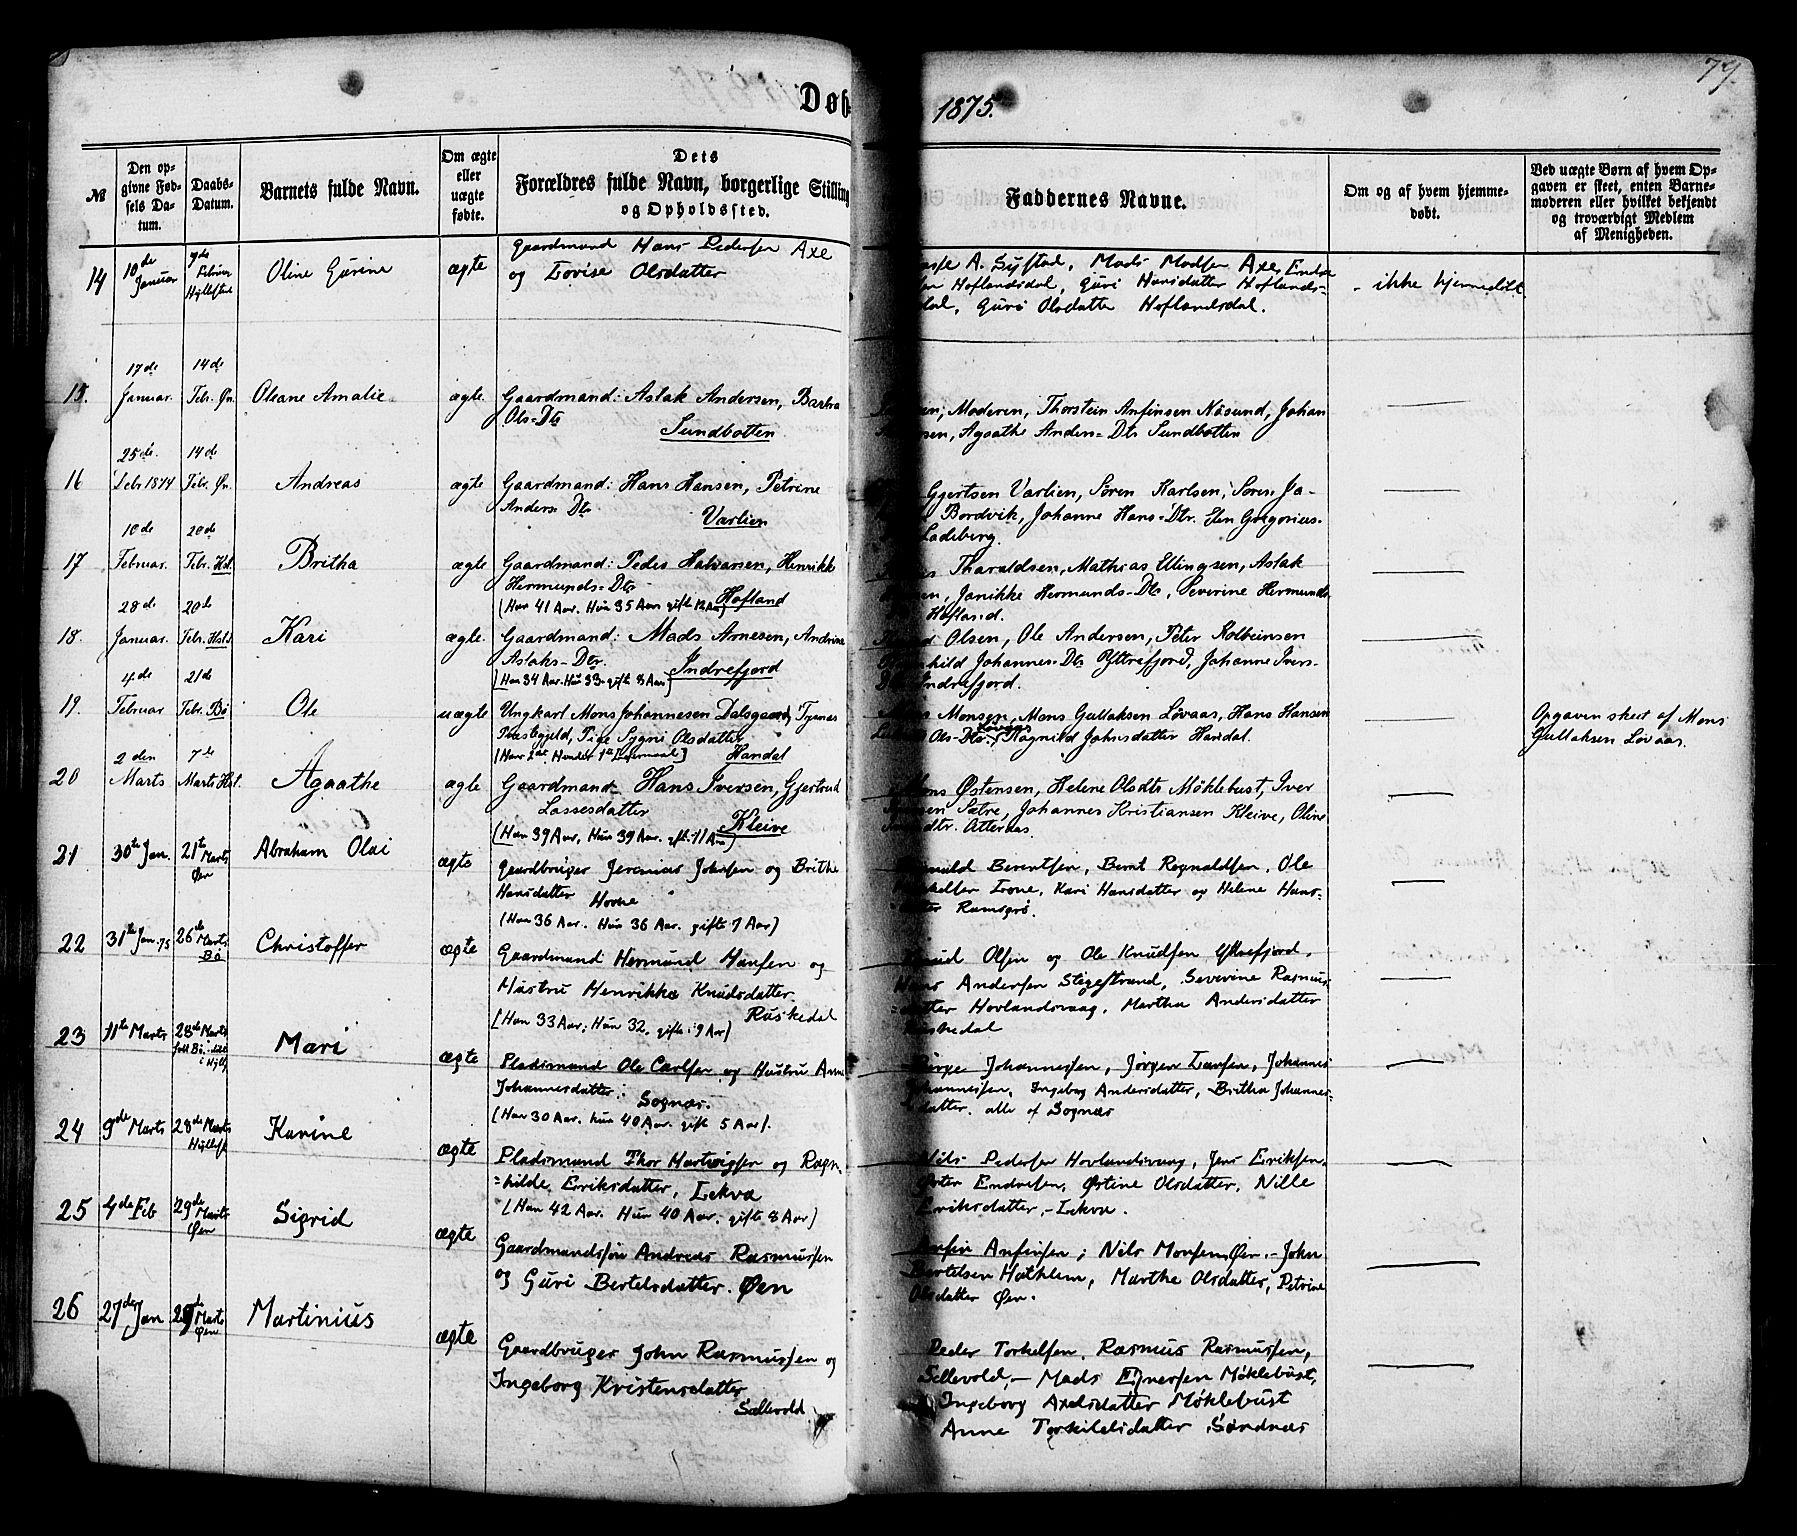 79.
Døb
1875.
№
Den opgivne Fødsels Datum.
Daabs-Datum.
Barnets fulde Navn.
Om ægte eller uægte fødte.
Dets Forældres fulde Navn, borgerlige Stilling og Opholdssted.
Faddernes Navne.
Om og af hvem hjemmedøbt.
Ved uægte Børn af hvem Opgaven er skeet, enten Barnemoderen eller hvilket bekjendt og troværdigt Medlem af Menigheden.
14 10de Januar 7de Februar Hyllestad Oline Gurine ægte Gaardmand Hans Pedersen Axe
og Lovise Olsdatter
A. Systad, Mads Madsen Axe, Endre
Hoflandsdal, Guri Hansdatter Hoflands-
dal, Guri Olsdatter Hoflandsdal.
- ikke hjemmedøbt
15. 17de Januar. 14de Febr. Øn. Oleane Amalie ægte Gaardmand: Aslak Andersen, Barbra
Ols-Dtr
Sundbotten
Moderen, Thorstein Anfinsen Nåsund, Johan
Agaathe Anders-Dtr Sundbotten
16 25de. Febr 1874 14de Febr. Øn. Andreas ægte Gaardmand: Hans Hansen, Petrine
Anders Dtr
Varlien
Gjertsen Varlien, Søren Karlsen, Søren Ja-
Bordvik, Johanne Hans-Dtr. Elen Gregorius-
Ladeberg.
17 10de Februar. 20de Febr. Hst. Britha ægte Gaardmand: Peder Halvorsen, Henrikke
Hermunds-Dtr
(Han 41 Aar. Hun 35 Aar gifte 12 Aar) Hofland
Tharaldsen, Mathias Ellingsen, Aslak
Janikke Hermunds-Dtr, Severine Hermunds
Hofland.
18. 28de Januar. 20de Febr. Hst. Kari ægte. Gaardmand: Mads Arnesen, Andrine
Aslaks-Dtr.
(Han 34 Aar. Hun 33- gifte 8 Aar) Indrefjord
Olsen, Ole Andersen, Peter Kolbeinsen
Johannes-Dtr Yttrefjord, Johanne Ivers-
Dtr Indrefjord.
19. 4de Februar 21de Febr. Bø Ole uægte Ungkarl Mons Johannesen Dalsgaard, Tysnes
Præstegjeld, Pige Sygni Olsdatter
(Hans 2det Hendes 1ste Leiermaal) Handal
Monsen, Mons Gullaksen Løvaas, Hans Hansen
Ols-Dtr Løvaas, Ragnild Johnsdatter Handal.
Opgaven skeet af Mons
Gullaksen Løvaas.
20 2den Marts 7de Marts Hst. Agaathe ægte Gaardmand Hans Iversen, Gjertrud
Lassesdatter
(Han 39 Aar, Hun 39 Aar. gifte 11 Aar) Kleive
Østensen, Helene Olsdtr Møklebust, Iver
Sætre, Johannes Kristiansen Kleive, Oline
Atteraas.
21 30te Jan. 21te Marts Øen Abraham Olai ægte Gaardbruger Jeremias Johnsen og Brithe
Hansdatter Hovne
(Han 36 Aar. Hun 36 Aar gifte 7 Aar)
Berentsen, Bernt Rognaldsen, Ole
Trone, Kari Hansdatter og Helene Hans-
datter Ramsgrø.
22 31te Jan. 75 26de Marts Bø Christoffer ægte Gaardmand Hermund Hansen og
Hustru Henrikka Knudsdatter
(Han 33 Aar; Hun 32, gifte: 9 Aar) Ruskedal
Knud Olsen og Ole Knudsen Yttrefjord,
Hans Andersen Stigestrand, Severine Rasmus-
datter Hovlandsvaag, Martha Andersdatter
Ruskedal
23 11te Marts 28de Marts født Bø, døbt i Hyll. Mari ægte Pladsmand Ole Carlsen og Hustru Anne
Johannesdatter: Sognæs.
(Han 30 Aar. hun 40 Aar. gift 5 Aar).
Børge Johannessen, Jørgen Larsen, Johannes
Johannessen, Ingeborg Andersdatter, Britha Johannes-
datter. alle af Sognæs
24 9de Marts 28de Marts Hyllest. Karine ægte Pladsmand Thor Martvigsen og Ragn-
-hilde Eriksdatter, Lekva
(Han 42 Aar. Hun 40 Aar, gifte 8 Aar)
Nils Pedersen Hovlandsvaag, Jens Eriksen,
Peter Endresen, Østine Olsdatter, Nille
Eriksdatter, - Lekva.
25 4de Feb 29de Marts Øen Sigrid ægte Gaardmandssøn Andreas Rasmussen
og Guri Bertelsdatter. Øen
Anfin Anfinsen; Nils Monsen Øen. - John
Bertelsen Hatklem, Marthe Olsdatter, Petrine
Olsdatter Øen.
26 27de Jan 29de Marts Øen Martinius ægte Gaardbruger John Rasmussen og
Ingeborg Kristensdatter
Sellevold
Peder Torkelsen, Rasmus Rasmussen,
Sellevold, - Mads Ejnersen Møklebust,
Ingeborg Axelsdatter Møklebust
Anne Torkildsdatter Sørdnæs